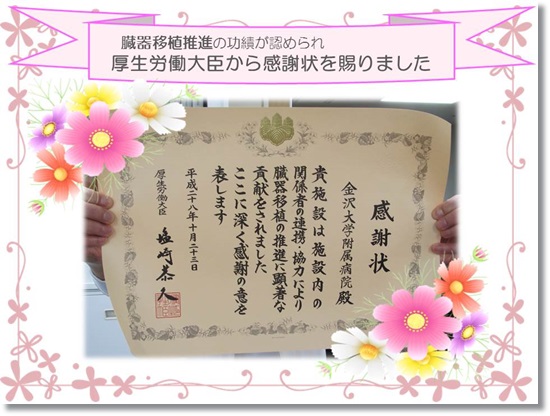 臓器移植推進の功績が認められ
厚生労働大臣から感謝状を賜りました
感謝状
金沢大学附属病院 殿
貴施設は施設内の
関係者の連携・協力により
臓器移植の推進に顕著な
貢献をされました
ここに深く感謝の意を
表します
平成二十八年十月二十三日
厚生労働大臣 塩崎恭久